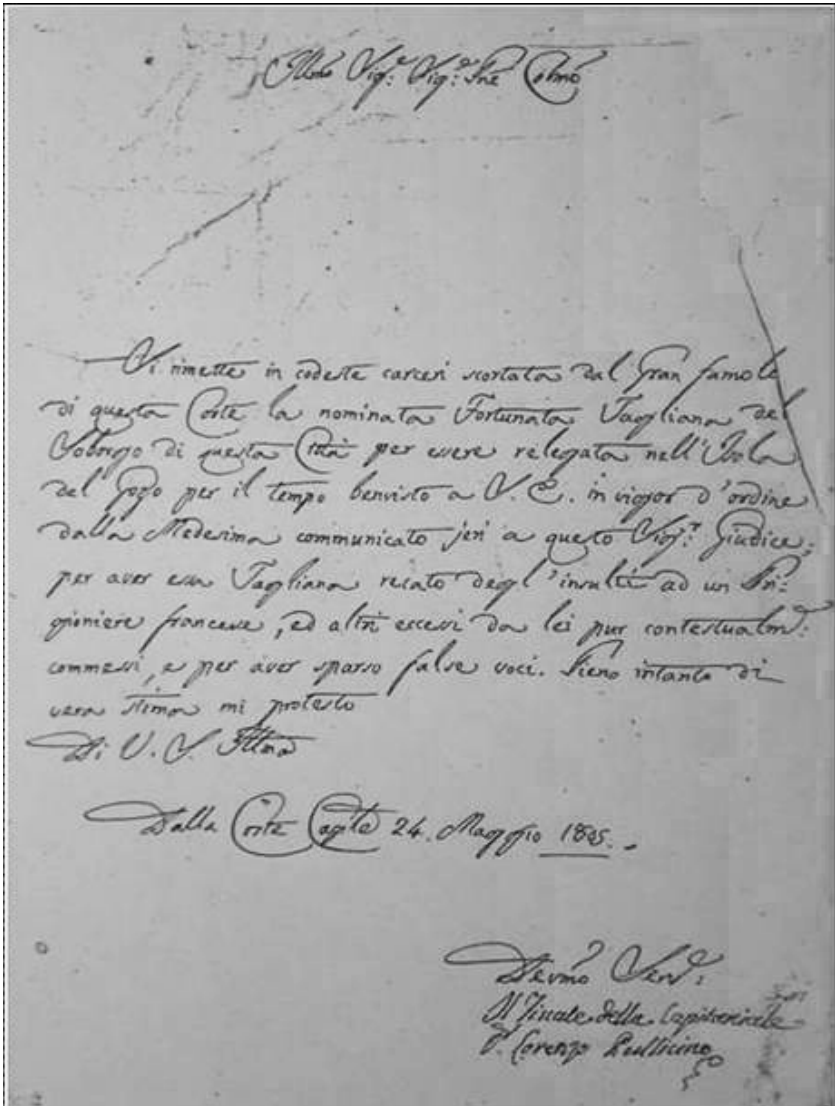 Illmo Sig.e Sig.e Pne Colmo
Si rimette in codeste carceri scortata dal Gran famolo
di questa Corte la nominata Fortunata Tagliana del
Soborgo di questa Città per essere relegata nell'Isola
del Gozo per il tempo benvisto a V. E. in vigor d'ordine
dalla Medesima communicato jeri a questo Sig.r Giudice;
per aver essa Tagliana recato degl'insulti ad un Pri:
gioniere francese, ed altri eccessi da lei pur contestualm.e
commessi, e per aver sparso false voci. Pieno intanto di
vera stima mi protesto
Di V. S. Illma
Dalla Corte Caple 24. Maggio 1805.
Devmo Serv.e
Il Fiscale della Capitaniale
Dr. Lorenzo Pullicino